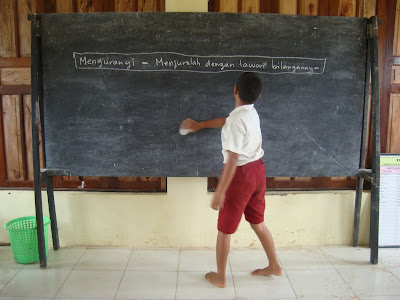 Mengurangi = Menjumlah dengan lawan² bilangannya